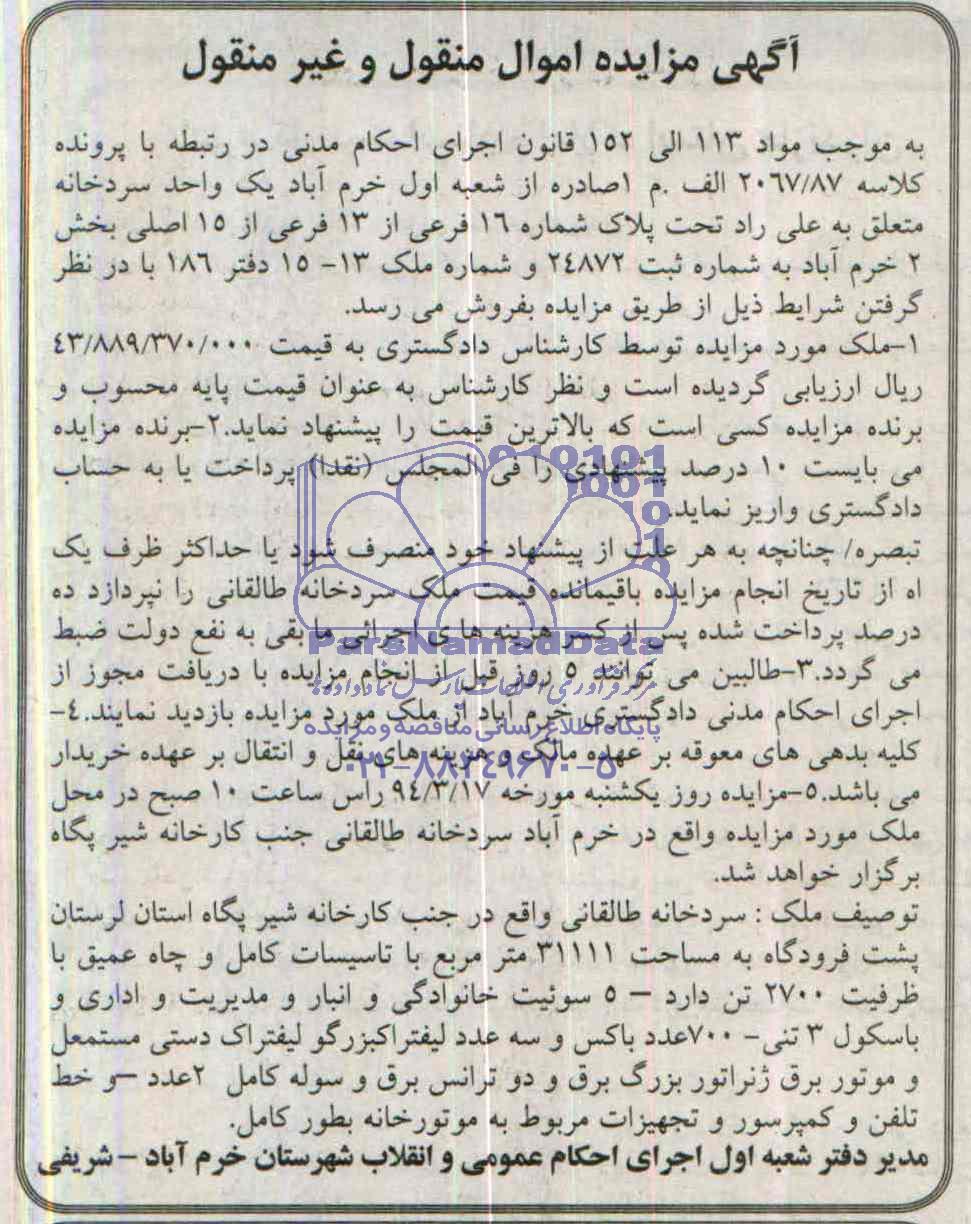 آگهی مزایده اموال منقول و غیر منقول
به موجب مواد ١١٣ الی ١٥٢ قانون اجرای احکام مدنی در رتبطه با پرونده
کلاسه ٢٠٦٧/٨٧ الف .م ١صادره از شعبه اول خرم آباد یک واحد سردخانه
متعلق به علی راد تحت پلاک شماره ١٦ فرعی از ١٣ فرعی از ١٥ اصلی بخش
٢ خرم آباد به شماره ثبت ٢٤٨٧٢ و شماره ملک ١٣- ١٥ دفتر ١٨٦ با در نظر
گرفتن شرایط ذیل از طریق مزایده بفروش می رسد.
١-ملک مورد مزایده توسط کارشناس دادگستری به قیمت ٤٣/٨٨٩/٣٧٠/٠٠٠
ریال ارزیابی گردیده است و نظر کارشناس به عنوان قیمت پایه محسوب و
برنده مزایده کسی است که بالاترین قیمت را پیشنهاد نماید.٢-برنده مزایده
می بایست ١٠ درصد پیشنهادی را فی المجلس (نقدا) پرداخت یا به حساب
دادگستری واریز نماید.
تبصره/ چنانچه به هر علت از پیشنهاد خود منصرف شود یا حداکثر ظرف یک
اه از تاریخ انجام مزایده باقیمانده قیمت ملک سردخانه طالقانی را نپردازد ده
درصد پرداخت شده پس از کسر هزینه های اجرائی مابقی به نفع دولت ضبط
می گردد.٣-طالبین می توانند ٥ روز قبل از انجام مزایده با دریافت مجوز از
اجرای احکام مدنی دادگستری خرم آباد از ملک مورد مزایده بازدید نمایند.٤-
کلیه بدهی های معوقه بر عهده مالک و هزینه های نقل و انتقال بر عهده خریدار
می باشد.٥-مزایده روز یکشنبه مورخه ٩٤/٣/١٧ راس ساعت ١٠ صبح در محل
ملک مورد مزایده واقع در خرم آباد سردخانه طالقانی جنب کارخانه شیر پگاه
برگزار خواهد شد.
توصیف ملک : سردخانه طالقانی واقع در جنب کارخانه شیر پگاه استان لرستان
پشت فرودگاه به مساحت ٣١١١١ متر مربع با تاسیسات کامل و چاه عمیق با
ظرفیت ٢٧٠٠ تن دارد – ٥ سوئیت خانوادگی و انبار و مدیریت و اداری و
باسکول ٣ تنی- ٧٠٠عدد باکس و سه عدد لیفتراکبزرگو لیفتراک دستی مستمعل
و موتور برق ژنراتور بزرگ برق و دو ترانس برق و سوله کامل ٢عدد –و خط
تلفن و کمپرسور و تجهیزات مربوط به موتورخانه بطور کامل.
مدیر دفتر شعبه اول اجرای احکام عمومی و انقلاب شهرستان خرم آباد – شریفی
ParsNamadData
پایگاه اطلاع رسانی مناقصه و مزایده
٠٢١-٨٨٣٤٩٦٧٠-٥